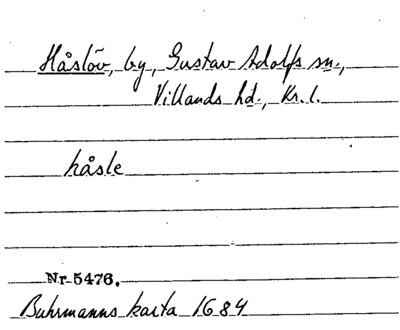 Håslöv, by, Gustav Adolfs sn.,
Villands hd., Kr. l.
håsle
Nr 5476.
Buhrmanns karta 1684